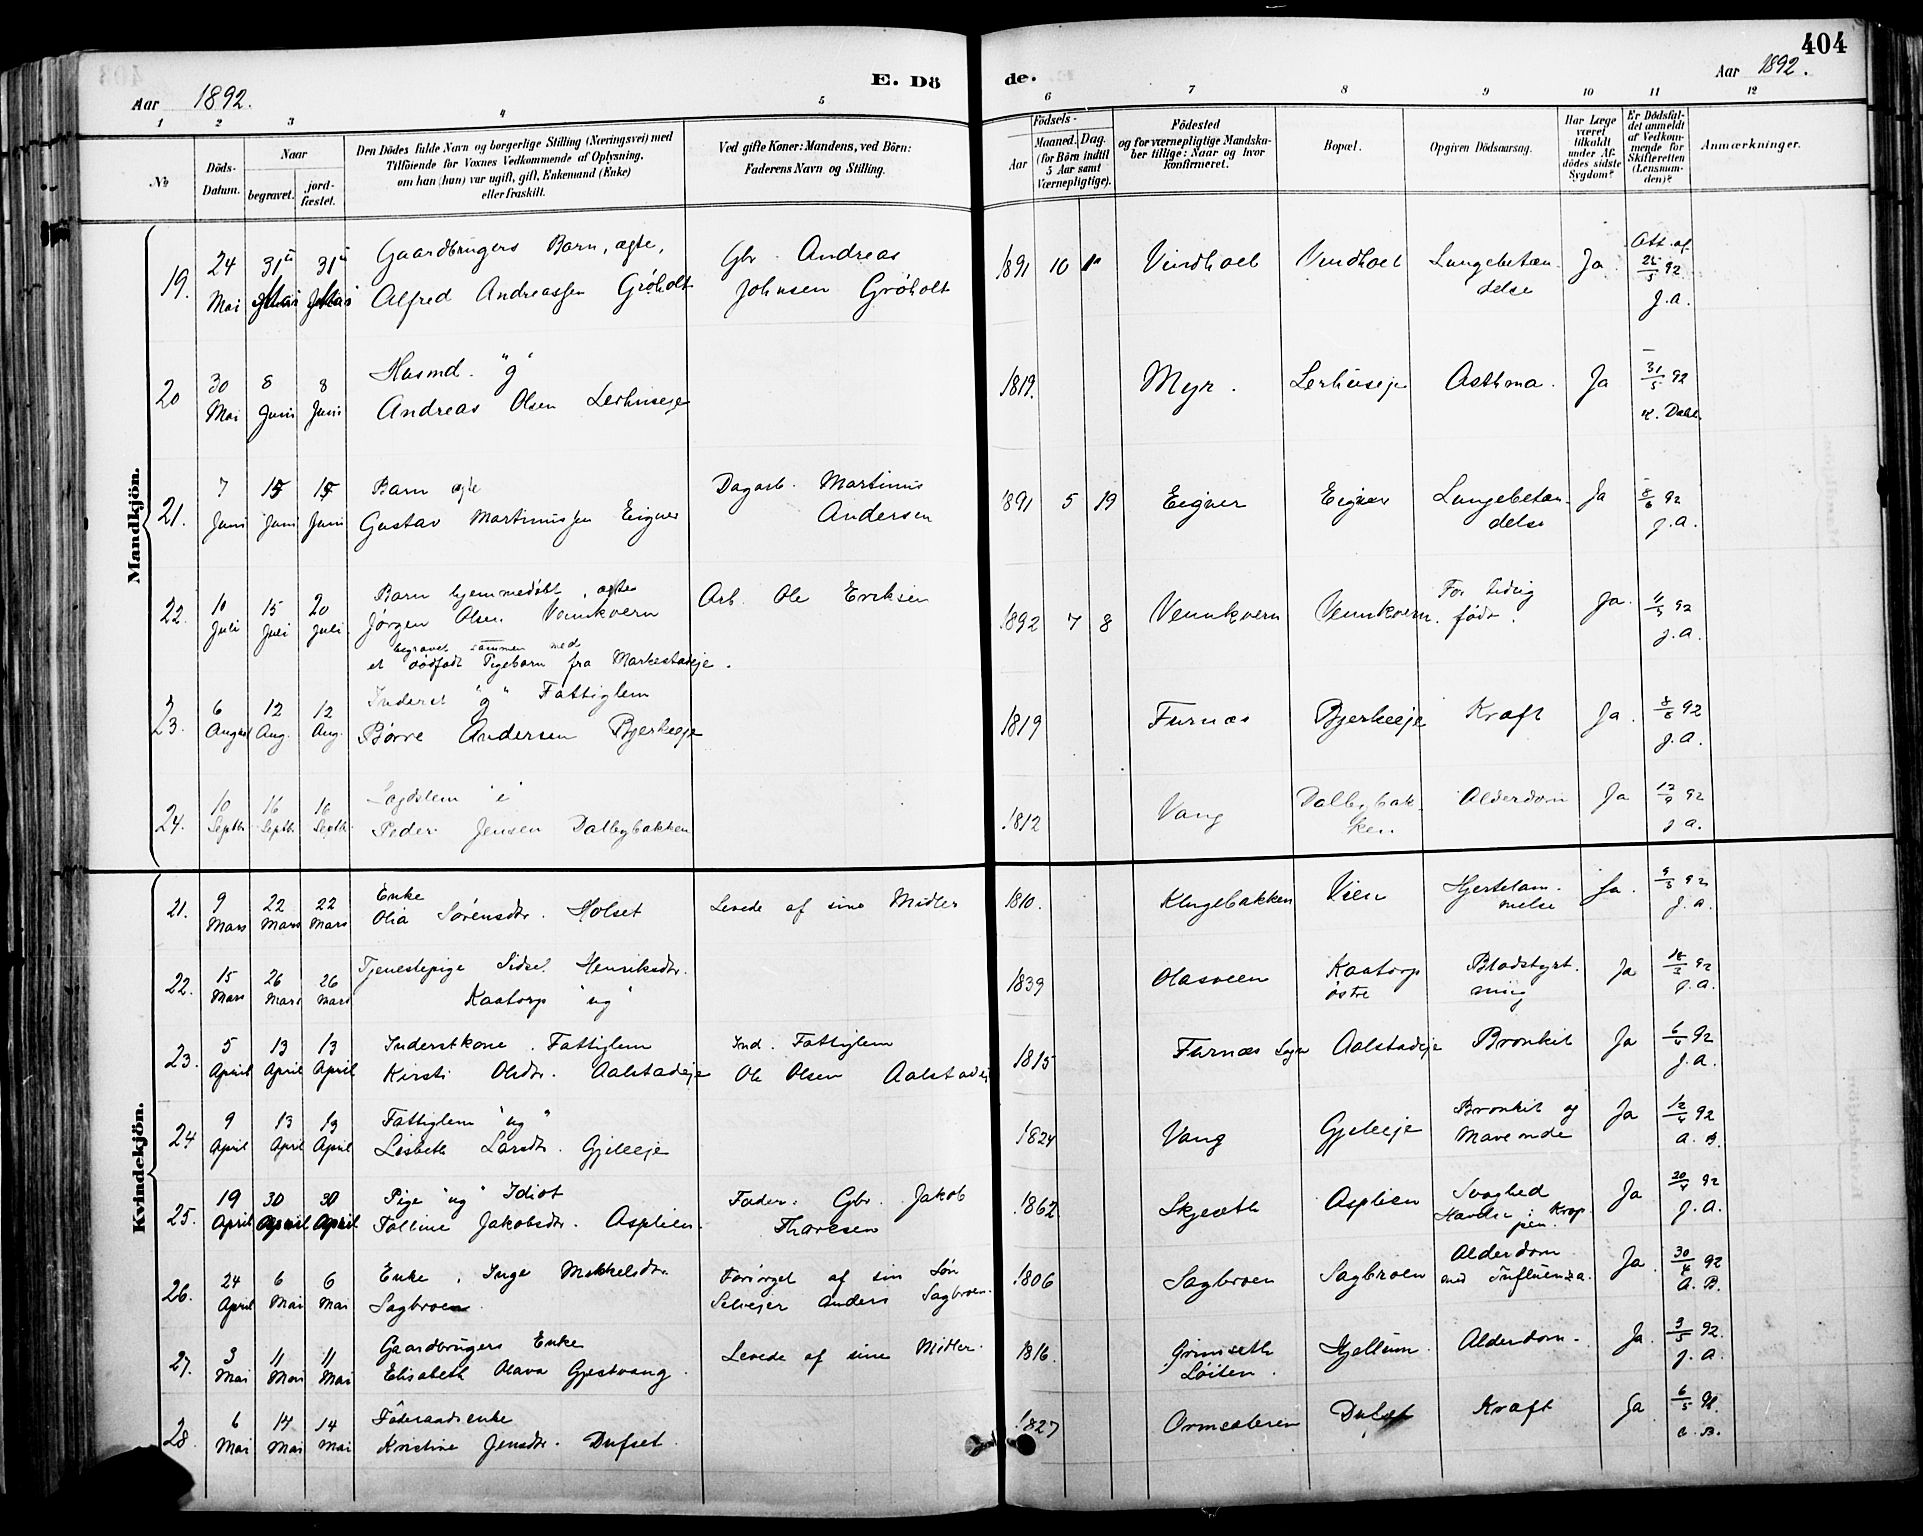 404
Aar 1892.
E. Dö
de.
Aar 1892.
1 2 3 4 5 6 7 8 9 10 11 12
No
Döds-Datum.
Naar
begravet.
jord-fæstet.
Den Dödes fulde Navn og borgerlige Stilling (Næringsvei) med
Tilföiende for Voxnes Vedkommende af Oplysning,
om han (hun) var ugift, gift, Enkemand (Enke)
eller fraskilt.
Ved gifte Koner: Mandens, ved Börn:
Faderens Navn og Stilling.
Födsels-
Aar
Maaned. Dag.
(for Börn indtil
5 Aar samt
Værnepligtige).
Födested
og for værnepligtige Mandskaber tillige: Naar og hvor
konfirmeret.
Bopæl.
Opgiven Dödsaarsag.
Har Læge
været
tilkaldt
under Afdödes sidste
Sygdom?
Er Dödsfaldet anmeldt
af Vedkommende for
Skifteretten
(Lensmanden)?
Anmærkninger.
Mandkjön.
19. 24 Mai 31te Mai 31te Mai
Gaardbrugers Barn, ægte,
Alfred Andreassen Gröholt
Gbr. Andreas
Johnsen Gröholt
1891 10 Vindhoel Vindhoel Lungebetændelse Ja. Att. af 25/5 92 J.A.
20 30 Mai 8 Juni 8 Juni
Husmd. "g"
Andreas Olsen Lerhuseje
1819. Myr. Lerhuseje Asthma. Ja 31/5 92 K. Dahl.
21. 7 Juni 15 Juni 15 Juni
Barn ægte
Gustav Martinussen Eigner
Dagarb. Martinus
Andersen
1891 5 19 Eigner Eigner Lungebetændelse Ja 8/6 92 J.A.
22. 10 Juli 15 Juli 20 Juli
Barn hjemmedöbt, ægte
Jörgen Olsen Vennkvern
begravet sammen med
et dödfödt Pigebarn fra Markestadeje.
Arb. Ole Eriksen
1892 7 8 Vennkvern Vennkvern. For tidlig födt. Ja. 92 J.A.
23. 6 August 12 Aug. 12 Aug.
Inderst "g" Fattiglem
Börre Andersen Bjerkeeje
1819 Furnæs Bjerkeeje Kræft Ja. 8/8 92 J.A.
24. 10 Septb. 16 Septb. 16 Septb.
Lægdslem
Peder Jensen Dalbybakken
1812 Vang Dalbybakken Alderdom Ja 12/9 92 J.A.
Kvindekjön.
21. 9 Mars 22 Mars 22 Mars
Enke
Olia Sörensdtr. Holset
Levede af sine Midler
1810. Klugebakken Vien Hjertelammelse Ja. 9/3 92 J.A.
22. 15 Mars 26 Mars 26 Mars
Tjenestepige Sidsel Henriksdtr.
Kaatorp "ug"
1839 Olasveen Kaatorp östre Blodstyrtning Ja 18/3 92 J.A.
23. 5 April 13 April 13 April
Inderstkone. Fattiglem
Kirsti Olsdtr. Aalstadeje
Ind. Fattiglem
Ole Olsen Aalstadeje
1815 Furnæs Sogn Aalstadeje Bronkit Ja 6/4 92 J.A.
24 9 April 13 April 13 April
Fattiglem "ug"
Lisbeth Larsdtr. Gjelleeje
1824 Vang Gjelleeje Bronkit og Maveonde Ja 12/4 92 A.B.
25. 19 April 30 April 30 April
Pige "ug" Idiot
Talline Jakobsdtr. Asplien.
Fader: Gbr. Jakob
Tharesen
1862 Skjeseth Asplien Svaghed Hævelse i Kroppen. Ja 20/4 92 J.A.
26. 24 April 6 Mai 6 Mai
Enke, Inge Mikkelsdtr.
Sagbroen.
Forsörget af sin Sön
Selvejer Anders Sagbroen.
1806 Sagbroen Sagbroen Alderdom med Influenza. Ja. 30/4 92 A.B.
27. 3 Mai 11 Mai 11 Mai
Gaardbrugers Enke
Elisabeth Olava Gjestvang.
Levede af sine Midler.
1816. Grimseth Löiten. Hjellum. Alderdom. Ja. 3/5 92. J.A.
28. 6 Mai 14 Mai 14 Mai
Föderaadsenke
Kristine Jensdtr. Dufset.
1827 Ormsæteren Dufset Kræft Ja. 6/5 92